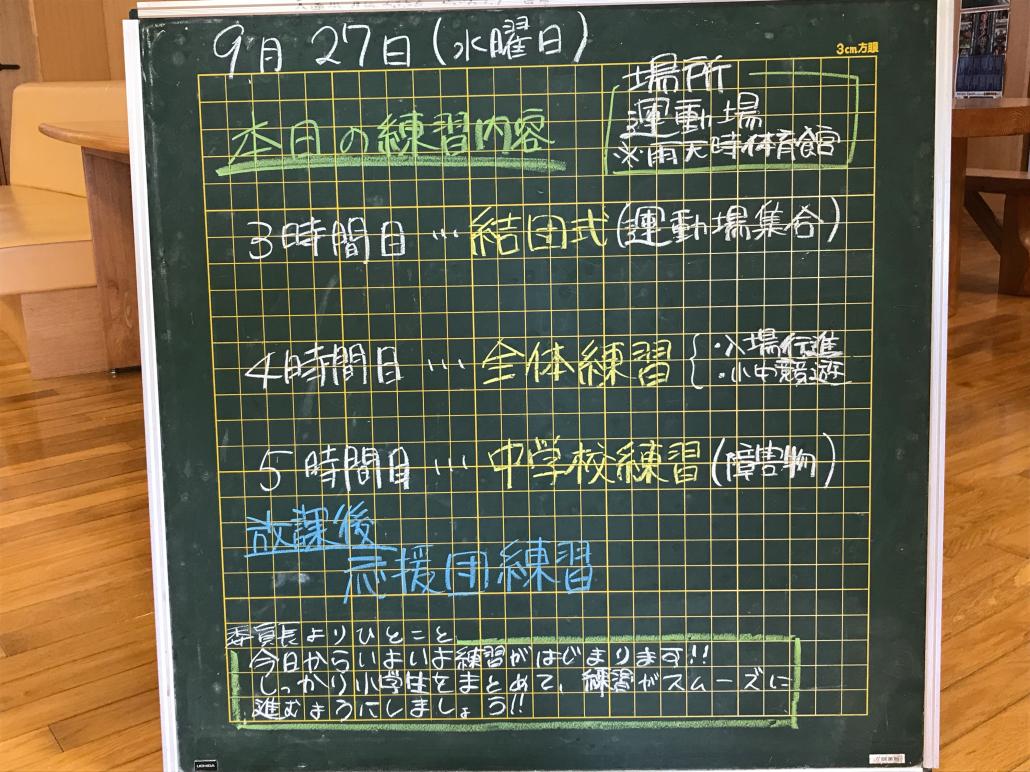 9月27日(水曜日)
3cm方眼
場所
運動場
※雨天時体育館
本日の練習内容
3時間目…結団式(運動場集合)
4時間目…全体練習
・入場行進
・小中競遊
5時間目…中学校練習(障害物)
放課後
応援団練習
委員長よりひとこと
今日からいよいよ練習がはじまります!!
しっかり小学生をまとめて、練習がスムーズに
進むようにしましょう!!
UCHIDA